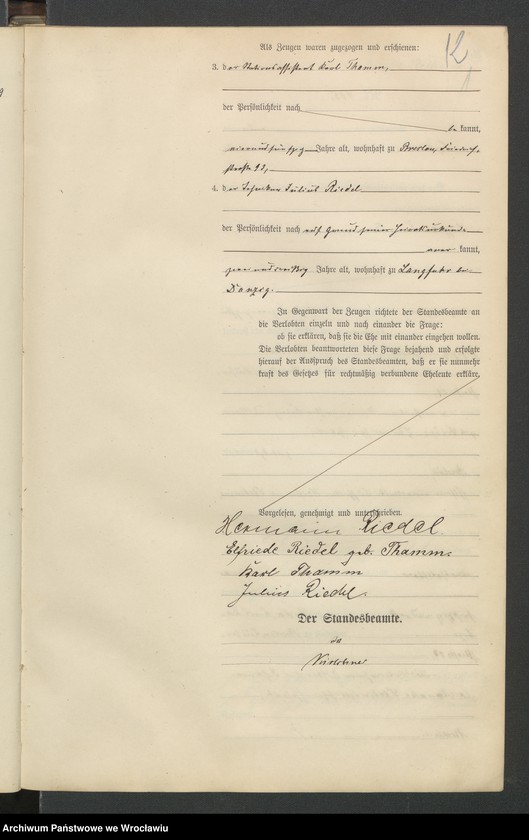 12
Als Zeugen waren zugezogen und erschienen:
3. der Stationsassistent Karl Thamm,
der Persönlichkeit nach
be kannt,
vierundfünfzig Jahre alt, wohnhaft zu Breslau, Friedrich-
straße 93,
4. der Techniker Julius Riedel
der Persönlichkeit nach auf Grund seiner
aner kannt,
zweiunddreißig Jahre alt, wohnhaft zu Langfuhr bei
Danzig.
In Gegenwart der Zeugen richtete der Standesbeamte an
die Verlobten einzeln und nach einander die Frage:
ob sie erklären, daß sie die Ehe mit einander eingehen wollen.
Die Verlobten beantworteten diese Frage bejahend und erfolgte
hierauf der Ausspruch des Standesbeamten, daß er sie nunmehr
kraft des Gesetzes für rechtmäßig verbundene Eheleute erkläre.
Vorgelesen, genehmigt und unterschrieben.
Hermann Riedel
Elfriede Riedel geb. Thamm.
Karl Thamm
Julius Riedel.
Der Standesbeamte.
Archiwum Państwowe we Wrocławiu